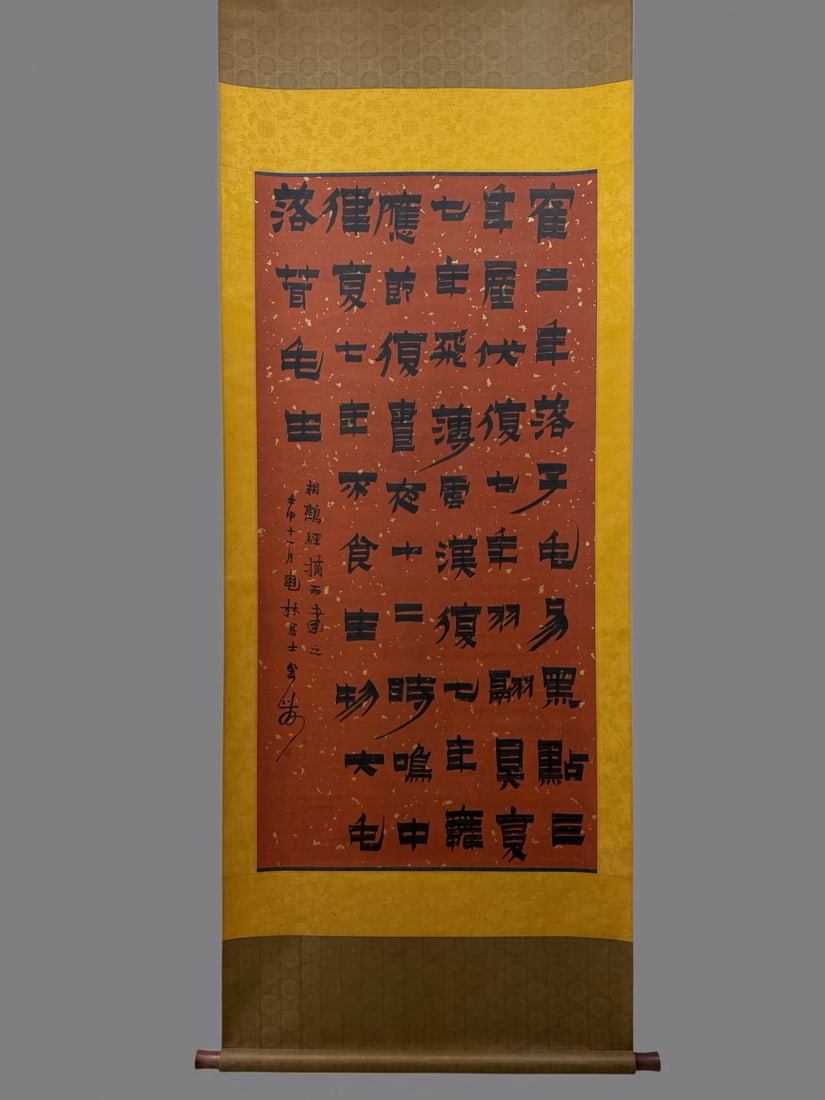 寉二年落子毛易黑點三
年産伏復七年羽翮具复
七年飛薄雲漢復七年舞
應節復晝夜十二時鳴中
律复七年不食生物大毛
落茸毛生
相鶴經摘而書之
壬申十一月林居士